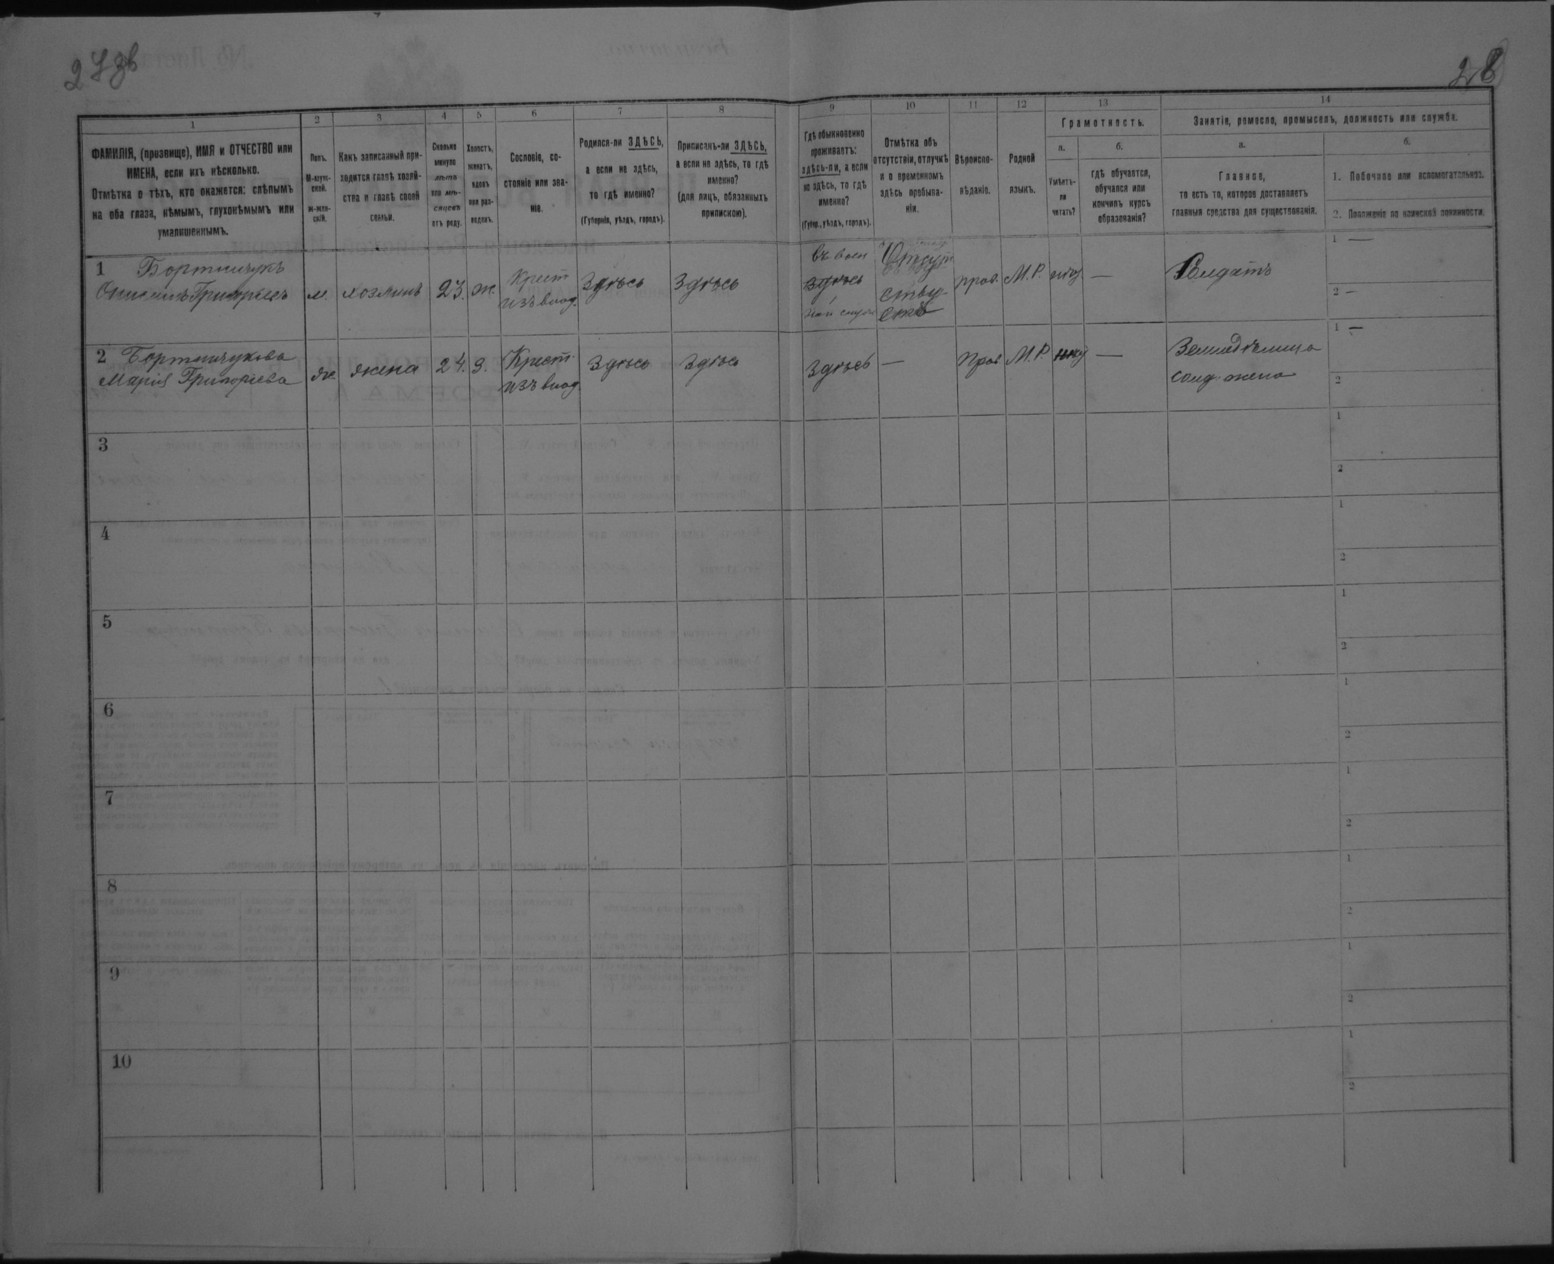 27
28
1
2
3
4
5
6
7
8
9
10
11
12
13
14
ФАМИЛІЯ, (прозвище), ИМЯ и ОТЧЕСТВО или
ИМЕНА, если ихъ нѣсколько.
Отмѣтка о тѣхъ, кто окажется: слѣпымъ
на оба глаза, нѣмымъ, глухонѣмымъ или
умалишеннымъ.
Полъ.
М-муж-
ской.
ж-жен-
скій.
Какъ записанный при-
ходится главѣ хозяй-
ства и главѣ своей
семьи.
Сколько
минуло
лѣтъ
или мѣ-
сяцевъ
отъ роду.
Холостъ,
женатъ,
вдовъ
или раз-
веденъ.
Сословіе, со-
стояніе или зва-
ніе.
Родился-ли ЗДѢСЬ,
а если не здѣсь,
то гдѣ именно?
(Губернія, уѣздъ, городъ).
Приписанъ-ли ЗДѢСЬ,
а если не здѣсь, то гдѣ
именно?
(для лицъ, обязанныхъ
припискою).
Гдѣ обыкновенно
проживаетъ:
здѣсь-ли, а если
не здѣсь, то гдѣ
именно?
(Губерн., уѣздъ, городъ).
Отмѣтка объ
отсутствіи, отлучкѣ
и о временномъ
здѣсь пребыва-
ніи.
Вѣроиспо-
вѣданіе.
Родной
языкъ.
Грамотность.
а.
Умѣетъ-
ли
читать?
б.
гдѣ обучается,
обучался или
кончилъ курсъ
образованія?
Занятіе, ремесло, промыселъ, должность или служба.
а.
Главное,
то есть то, которое доставляетъ
главныя средства для существованія.
б.
1. Побочное или вспомогательное.
2. Положеніе по воинской повинности.
1 Бортничукъ
Григорьевъ
м. хозяинъ 23. ж. Крест
изъ влад. Здѣсь Здѣсь
въ воен
здѣсь
ной служ
Отсут
ству-
етъ
прав. М.Р. нѣт — Солдатъ
1 —
2 —
2 Бортничукова
Марія Григорьева
ж. жена 24. з. Крест
изъ влад. Здѣсь Здѣсь Здѣсь — Прав М.Р. — Земледѣлица
солд жена
1 —
2
3
1
2
4
1
2
5
1
2
6
1
2
7
1
2
8
1
2
9
1
2
10
1
2